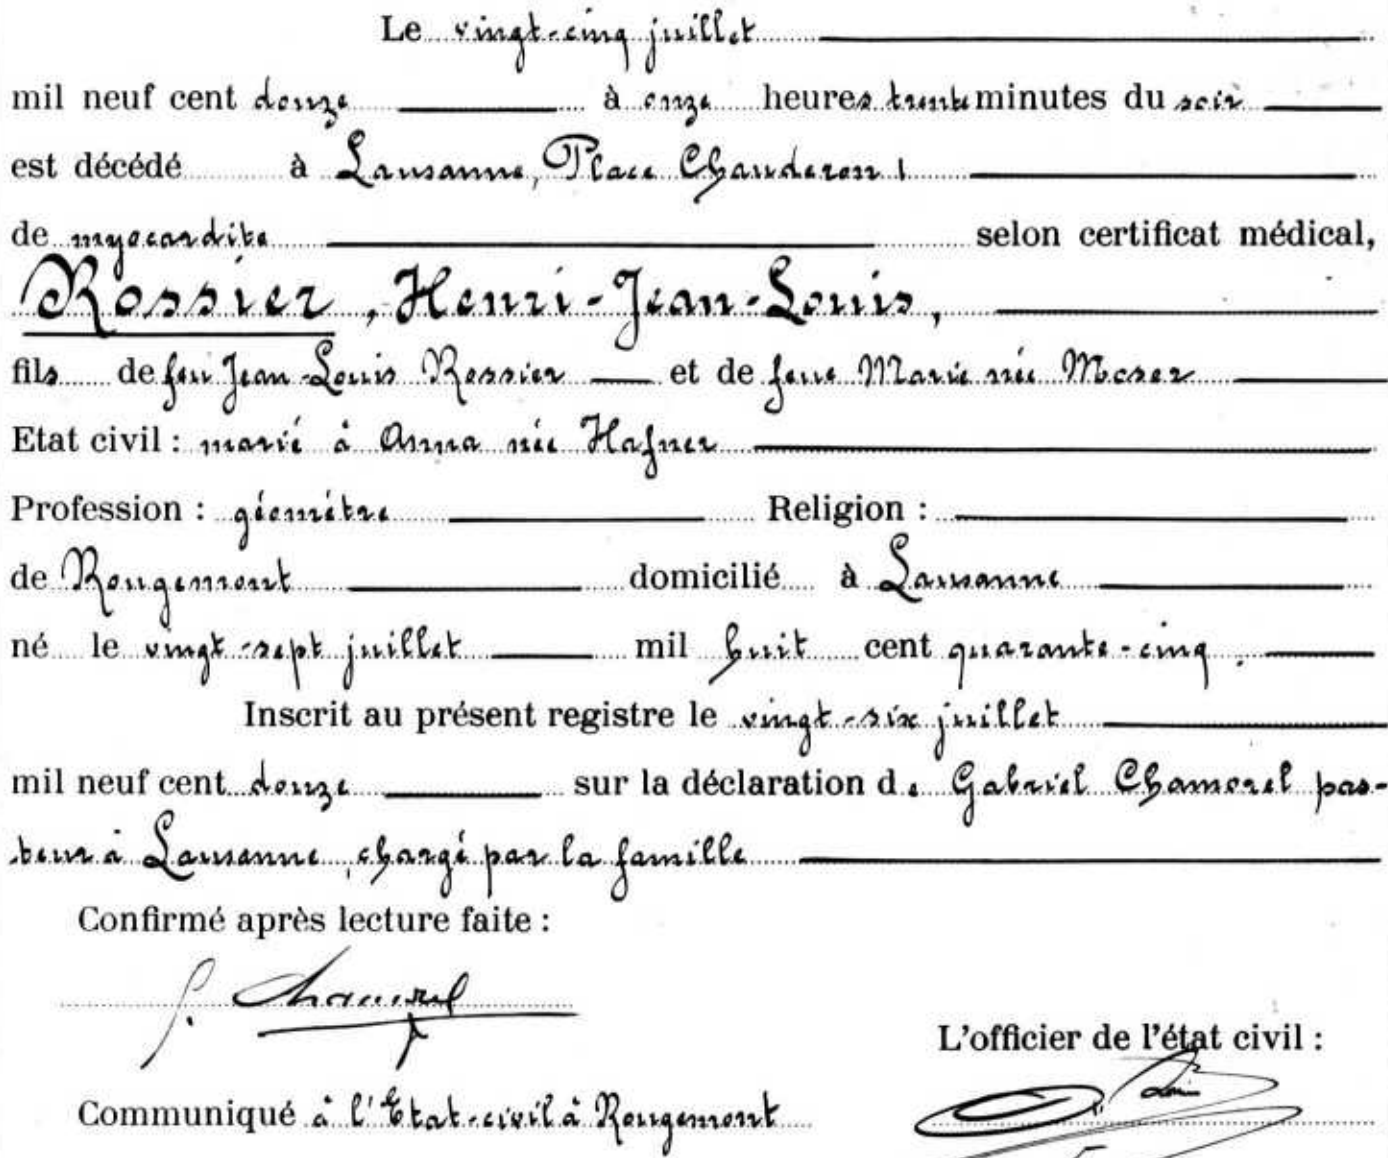 Le vingt-cinq juillet
mil neuf cent douze à onze heures trente minutes du soir
est décédé à Lausanne, Place Chauderon 1
de myocardite selon certificat médical,
Rossier, Henri-Jean-Louis,
fils de feu Jean-Louis Rossier et de feue Marie née Moser
Etat civil : marié à Anna née Hafner
Profession : géomètre Religion :
de Rougemont domicilié à Lausanne
né le vingt-sept juillet mil huit cent quarante-cinq.
Inscrit au présent registre le vingt-six juillet
mil neuf cent douze sur la déclaration de Gabriel Chamorel pas-
teur à Lausanne, chargé par la famille
Confirmé après lecture faite :
G. Chamorel
L'officier de l'état civil :
Communiqué à l'Etat-civil à Rougemont